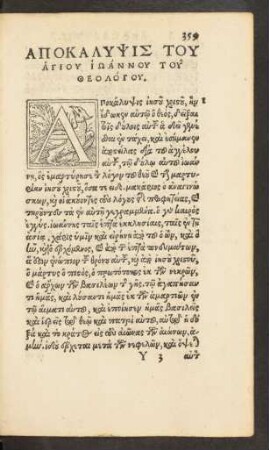 359
ΑΠΟΚΑΛΥΨΙΣ ΤΟΥ
ἁγίου ἰωάννου τοῦ
θεολόγου.
Αποκάλυψις ἰησοῦ χριστοῦ, ἣν 1
ἔδωκεν αὐτῷ ὁ θεὸς, δεῖξαι
τοῖς δούλοις αὐτοῦ ἃ δεῖ γενέ-
σθαι ἐν τάχει, καὶ ἐσήμανεν
ἀποστείλας διὰ τοῦ ἀγγέλου
αὐτοῦ, τῷ δούλῳ αὐτοῦ ἰωάν-
νῃ, ὃς ἐμαρτύρησε τὸν λόγον τοῦ θεοῦ καὶ τὴν μαρτυ-
ρίαν ἰησοῦ χριστοῦ, ὅσα τε εἶδε. μακάριος ὁ ἀναγινώ
σκων, καὶ οἱ ἀκούοντες τοὺς λόγους τῆς προφητείας, καὶ
τηροῦντες τὰ ἐν αὐτῇ γεγραμμένα. ὁ γὰρ καιρὸς
ἐγγύς. ἰωάννης ταῖς ἑπτὰ ἐκκλησίαις, ταῖς ἐν τῇ ἀ-
σίᾳ, χάρις ὑμῖν καὶ εἰρήνη ἀπὸ τοῦ ὁ ὢν, καὶ ὁ
ἦν, καὶ ὁ ἐρχόμενος, καὶ ἀπὸ τῶν ἑπτὰ πνευμάτων,
ἅ ἐστιν ἐνώπιον τοῦ θρόνου αὐτοῦ, καὶ ἀπὸ ἰησοῦ χριστοῦ,
ὁ μάρτυς ὁ πιστὸς, ὁ πρωτότοκος ἐκ τῶν νεκρῶν,
καὶ ὁ ἄρχων τῶν βασιλέων τῆς γῆς, τῷ ἀγαπήσαν
τι ἡμᾶς, καὶ λούσαντι ἡμᾶς ἀπὸ τῶν ἁμαρτιῶν ἡμῶν ἐν
τῷ αἵματι αὐτοῦ, καὶ ἐποίησεν ἡμᾶς βασιλεῖς
καὶ ἱερεῖς τῷ θεῷ καὶ πατρὶ αὐτοῦ, αὐτῷ ἡ δό
ξα καὶ τὸ κράτος εἰς τοὺς αἰῶνας τῶν αἰώνων, ἀ-
μήν. ἰδοὺ ἔρχεται μετὰ τῶν νεφελῶν, καὶ ὄψεται
Y 3 αὐτ